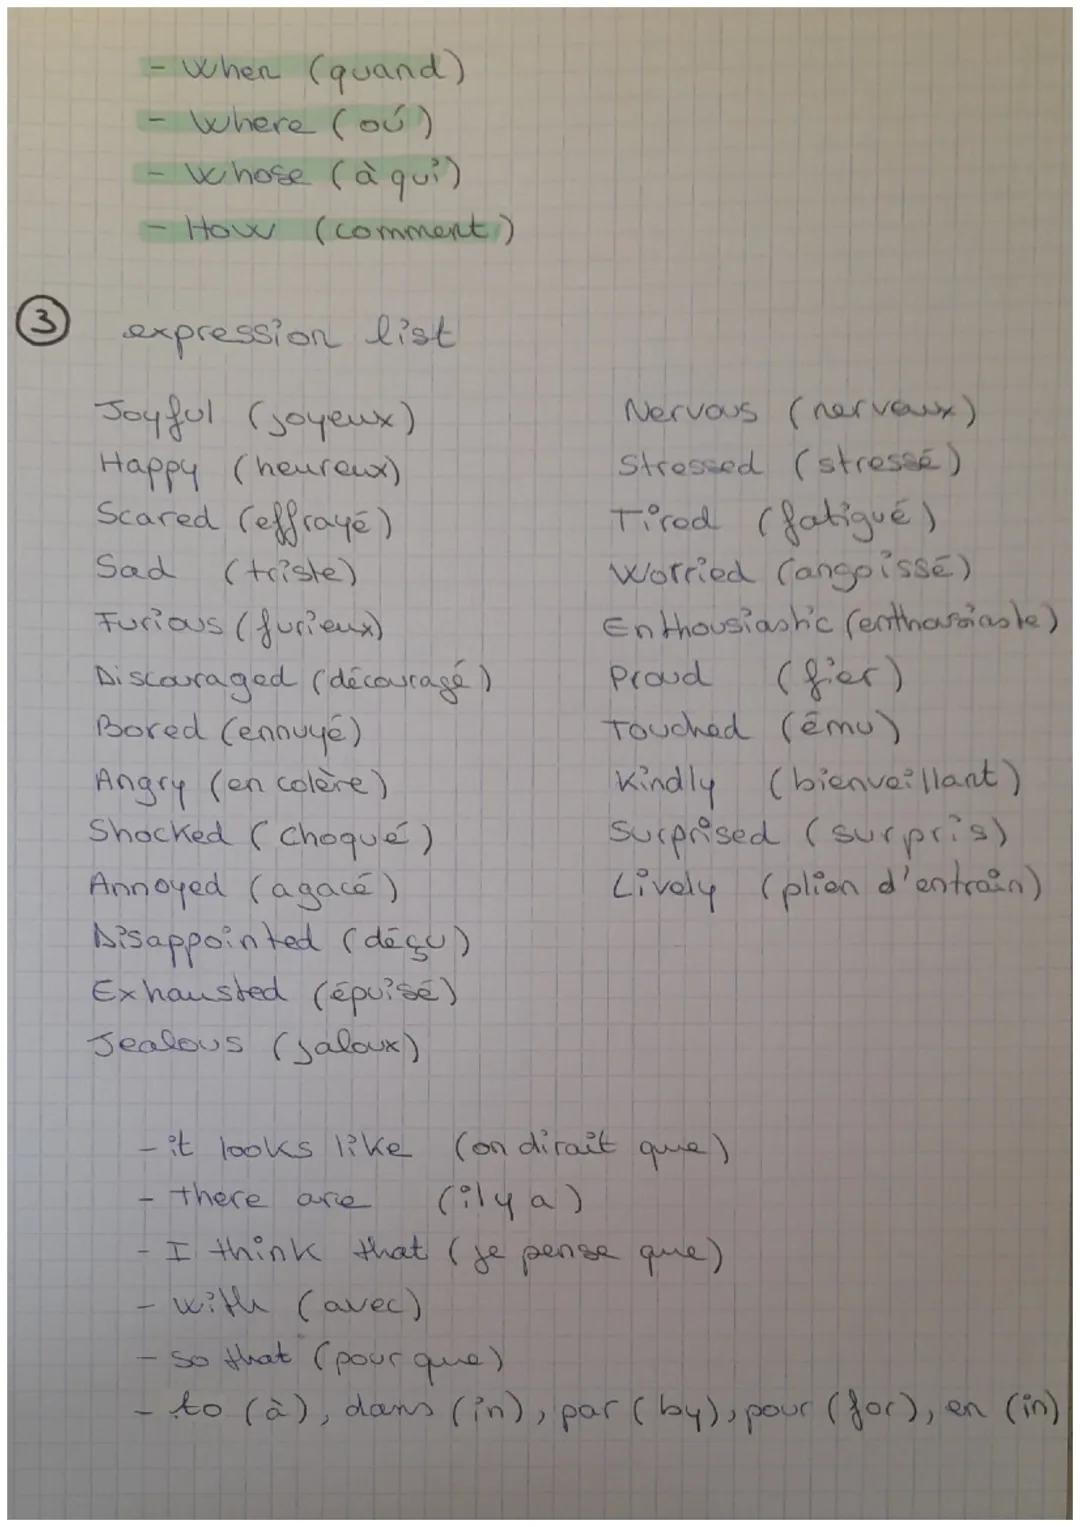 - When (quand)
- Where (oú)
- Whose (à qui)
- How (comment)
3 expression list
Joyful (joyeux)
Happy (heureux)
Scared (effrayé)
Sad (triste)
Furious (furieux)
Discouraged (découragé)
Bored (ennuyé)
Angry (en colère)
Shocked (choqué)
Annoyed (agacé)
Disappointed (déçu)
Exhausted (épuisé)
Jealous (jaloux)
Nervous (nerveux)
Stressed (stressé)
Tired (fatigué)
Worried (angoissé)
Enthousiastic (enthousiaste)
Proud (fier)
Touched (ému)
Kindly (bienveillant)
Surprised (surpris)
Lively (plien d'entrain)
- it looks like (on dirait que)
- there are (il y a)
- I think that (je pense que)
- with (avec)
- so that (pour que)
- to (à), dans (in), par (by), pour (for), en (in)